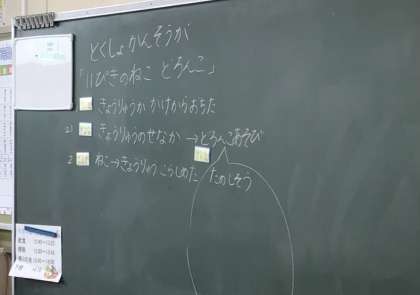 とくしょかんそうが
「11ぴきのねこ どろんこ」
きょうりゅうがかけからおちた
21 きょうりゅうのせなか→どろんこあそび
2 ねこ→きょうりゅう こらしめた たのしそう